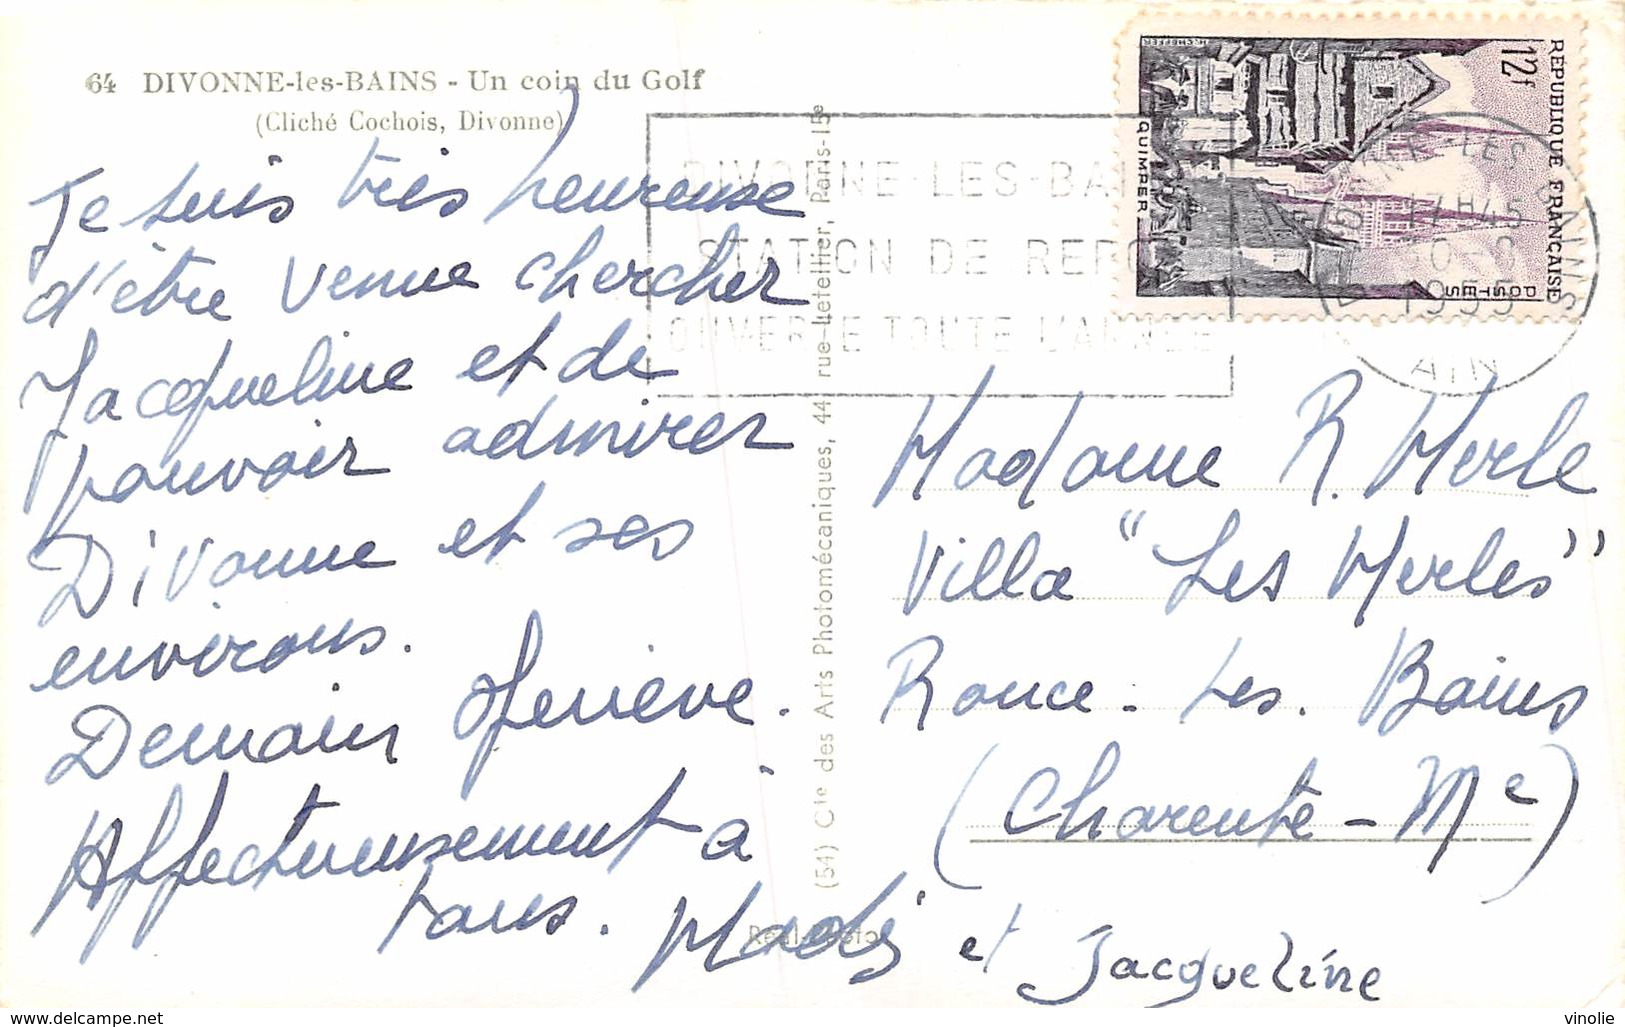 64 DIVONNE-les-BAINS - Un coin du Golf
(Cliché Cochois, Divonne)
Je suis très heureuse
d'être venue chercher
Jacqueline et de
pouvoir admirer
Divonne et ses
environs.
Demain Genève.
Affectueusement à
tous. Mady et Jacqueline
(54) Cie des Arts Photomécaniques, 44, rue Letellier, Paris-15e
Real-Photo
DIVONNE-LES-BAINS
STATION DE REPOS
OUVERTE TOUTE L'ANNÉE
REPUBLIQUE FRANÇAISE
12f
POSTES
QUIMPER
DIVONNE-LES-BAINS
17H45
1955
AIN
Madame R. Merle
Villa "Les Merles"
Ronce-Les-Bains
(Charente-Me)
https://www.delcampe.net
vinolie